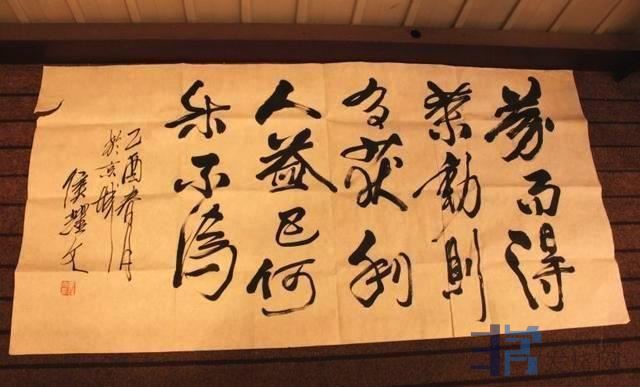 劳而得
荣勤則
多获利
人益己何
乐不為
乙酉春月
於京城
侯耀文